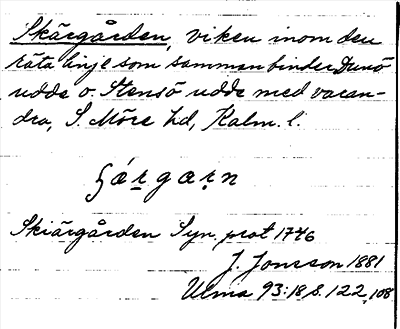 Skärgården, viken inom den
räta linje som sammanbinder Dunö
udde o. Stensö udde med varan-
dra, S. Möre hd, Kalm. l.
ʃǽrgarn
Skiärgården Syn. prot 1746
J. Jonsson 1881
Ulma 93:18 s. 122, 108